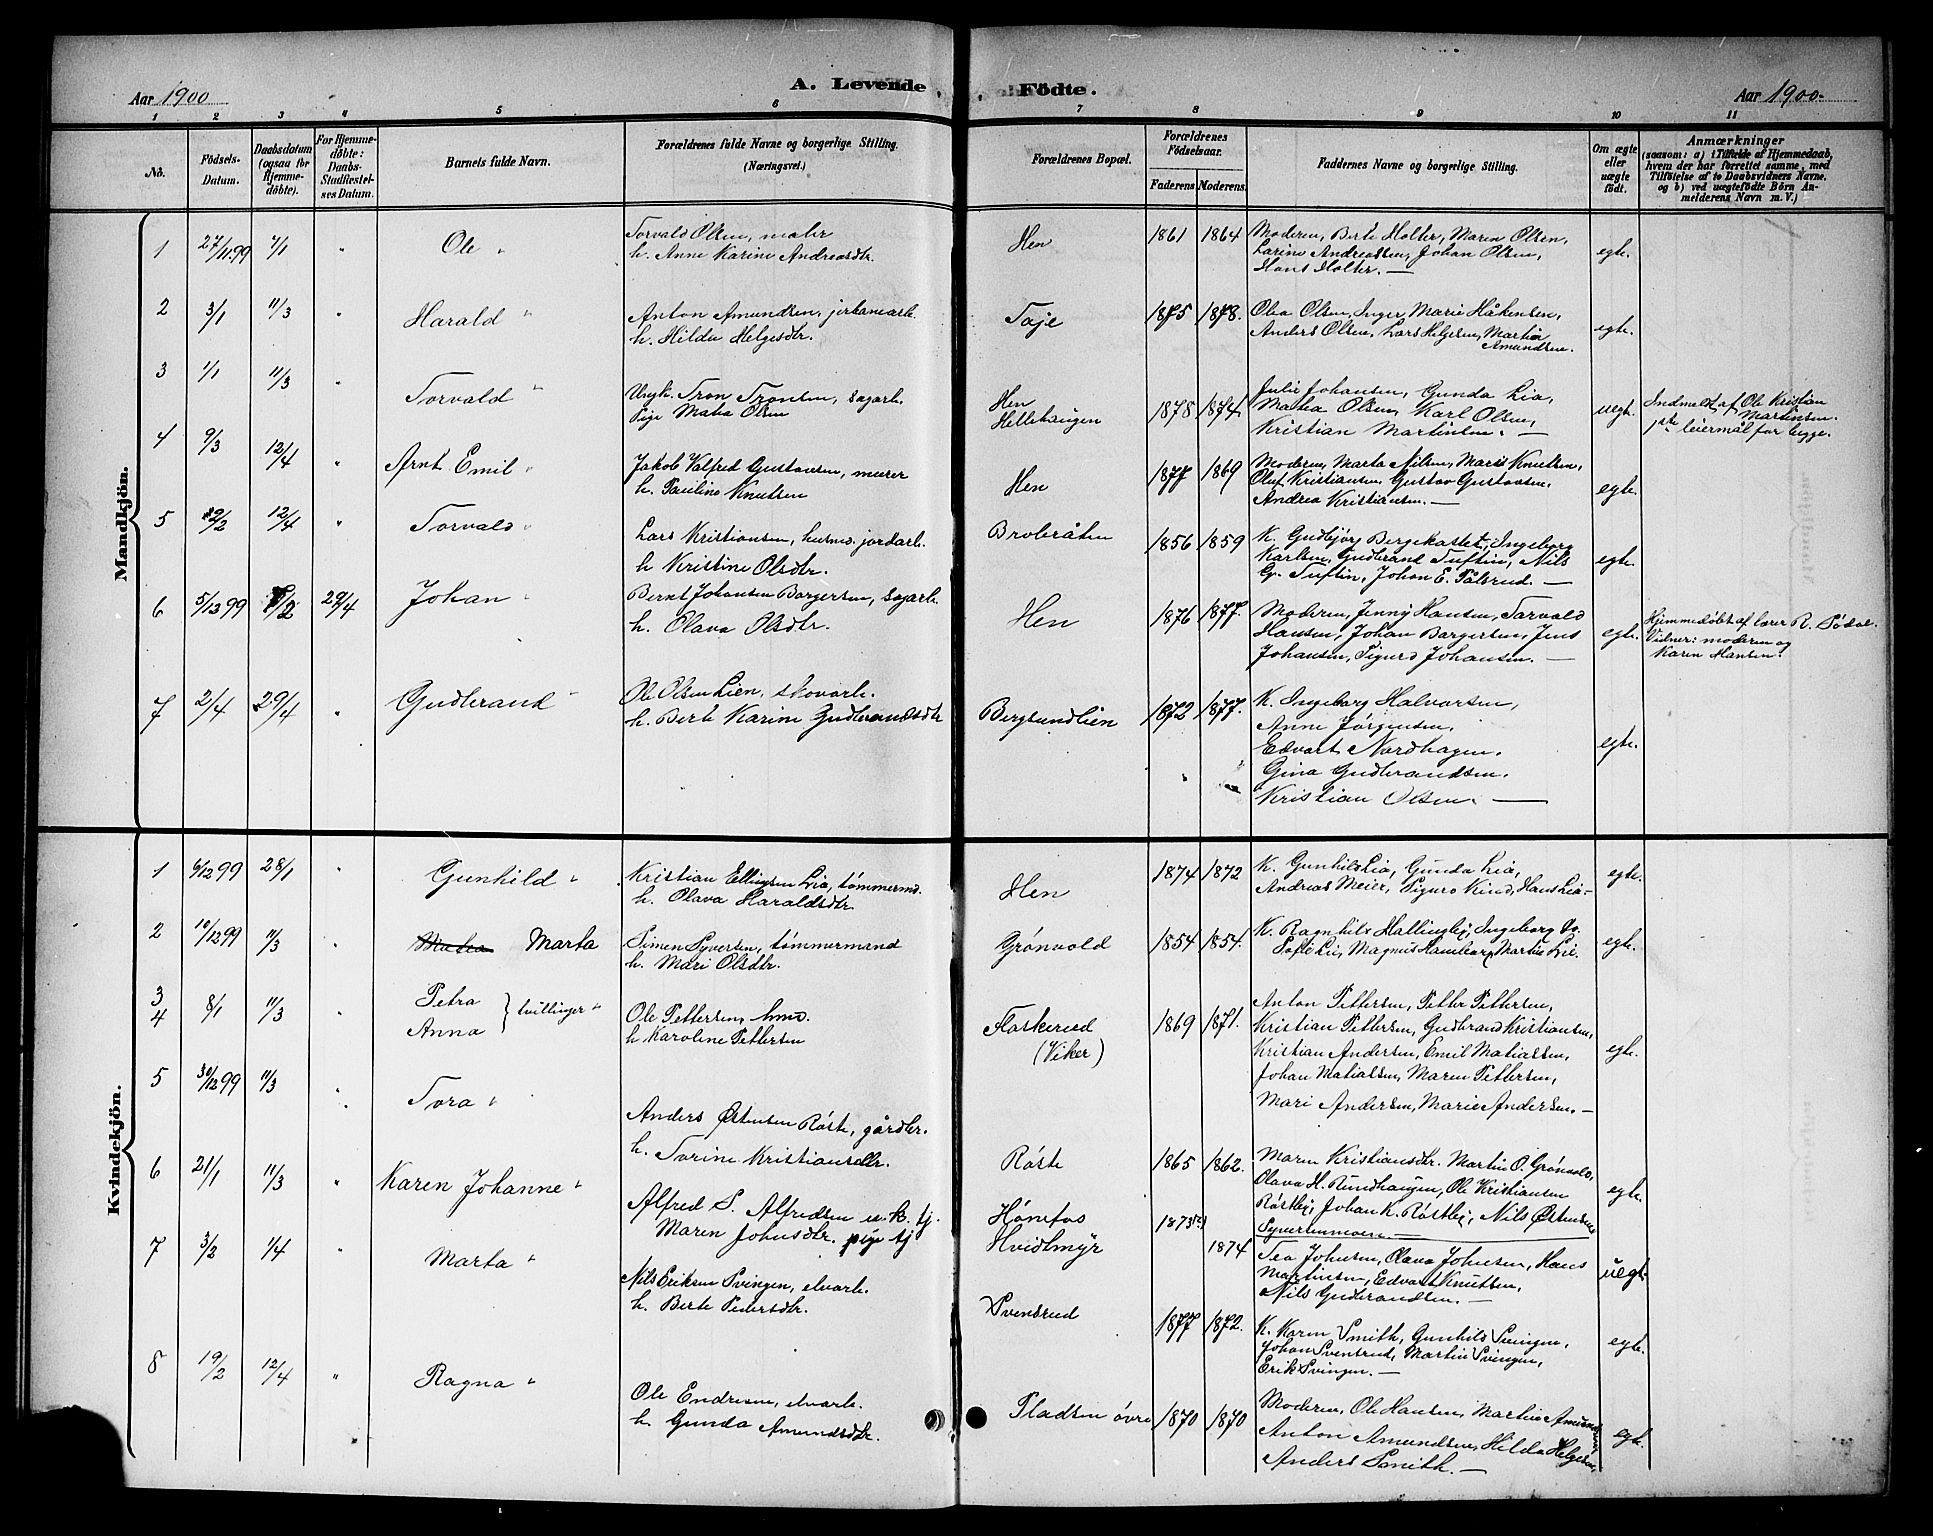 Aar 1900
A. Levende
Födte.
Aar 1900.
1 2 3 4 5 6 7 8 9 10 11
No.
Födsels-
Datum.
Daabsdatum
(ogsaa for
Hjemme-
döbte).
For Hjemme-
döbte:
Daabs-
Stadfæstel-
ses Datum.
Barnets fulde Navn.
Forældrenes fulde Navne og borgerlige Stilling.
(Næringsvei.)
Forældrenes Bopæl.
Forældrenes
Födselsaar.
Faderens Moderens.
Faddernes Navne og borgerlige Stilling.
Om ægte
eller
uægte
födt.
Anmærkninger
(saasom: a) i Tilfælde af Hjemmedaab,
hvem der har forrettet samme, med
Tilföielse af to Daabsvidners Navne,
og b) ved uægtefödte Börn An-
melderens Navn m. V.)
Mandkjön.
1 27/11 99 7/1 " Ole "
Torvald Olsen, maler
h. Anne Karine Andreasdtr.
Hen 1861 1864
Moderen, Berte Holter, Maren Olsen,
Larine Andreassen, Johan Olsen,
Hans Holter. —
egte.
2 3/1 11/3 " Harald "
Anton Amundsen, jernbanearb.
h. Hilda Helgesdtr.
Toje 1875 1878.
Olea Olsen, Inger Marie Håkensen,
Anders Olsen, Lars Helgesen, Martin
Amundsen.
egte.
3 1/1 11/3 " Torvald "
Ungk. Tron Tronsen, sagarb.
Pige Matea Olsen
Hen
Hellehaugen
1878 1874
Julie Johansen, Gunda Lia,
Mathea Olsen, Karl Olsen,
Kristian Martinsen. —
uegt.
Indmeldt af Ole Kristian
Martinsen.
1ste leiermål for begge.
4 9/3 12/4 " Arnt Emil "
Jakob Valfred Gustavsen, murer
h. Pauline Knutsen
Hen 1877 1869
Moderen, Marta Nilsen, Maris Knutsen,
Oluf Kristiansen, Gustav Gustavsen,
Andrea Kristiansen. —
egte.
5 22/2 12/4 " Torvald "
Lars Kristiansen, husmd. jordarb.
h Kristine Olsdtr.
Brobråten 1856 1859
K. Gudbjørg Bergekastet, Ingeborg
Karlsen, Gudbrand Tuftin, Nils
G. Tuftin, Johan E. Pålsrud. —
egte.
6 5/12 99 8/2 29/4 Johan "
Bernt Johansen Borgersen, sagarb.
h. Olava Olsdtr.
Hen 1876 1877.
Moderen, Jenny Hansen, Torvald
Hansen, Johan Borgersen, Jens
Johansen, Sigurd Johansen. —
egte.
Hjemmedøbt af lærer R. Sødal.
Vidner: moderen og
Karen Hansen.
7 2/4 29/4 " Gudbrand "
Ole Olsen Lien, skovarb.
h. Berte Karine Gudbrandsdtr
Bergsundlien 1872 1877.
K. Ingeborg Halvorsen,
Anne Jørgensen,
Edvart Nordhagen.
Gina Gudbrandsen.
Kristian Olsen. —
egte.
Kvindekjön.
1 6/12 99 28/1 " Gunhild "
Kristian Ellingsen Lia, tømmermd.
h. Olava Haraldsdtr.
Hen 1874 1872
K. Gunhild Lia, Gunda Lia,
Andreas Meier, Sigurd Kind, Hans Lia —
egte.
2 10/12 99 11/3 " Mathea Marta
Simen Syversen, tømmermand
h. Mari Olsdtr.
Grønvold 1854 1854.
K. Ragnhild Hallingby, Ingeborg Os.
Sofie Lie, Magnus Hamborg, Martin Lie.
egte.
3
4 8/1 11/3 "
Petra
Anna } tvillinger "
Ole Pettersen, hmd.
h Karoline Pettersen
Flaskerud
(Viker)
1869 1871.
Anton Pettersen, Petter Pettersen,
Kristian Pettersen, Gudbrand Kristiansen,
Kristian Andersen, Emil Matiassen,
Johan Matiassen, Maren Pettersen,
Mari Andersen, Marie Andersen. —
egte.
5 30/12 99 11/3 " Tora "
Anders Østensen Røste, gårdbr.
h. Torine Kristiansdtr.
Røste 1865 1862.
Maren Kristiansdtr. Martin O. Grønvold,
Olava H. Rundhaugen, Ole Kristiansen
Røstbø, Johan K. Røstbø, Nils Østensen
Syvertenmoen. —
egte.
6 21/1 11/3 " Karen Johanne "
Alfred S. Alfredsen u. k. tj.
Maren Johnsdtr. pige tj
Hønefos
Hvidtmyr
1873
1874
Tea Johnsen, Olava Johnsen, Hans
Martinsen, Edvart Knutsen,
Nils Gudbrandsen. —
uegt.
7 3/2 1/4 " Marta "
Nils Eriksen Svingen, elvarb.
h. Berte Pedersdtr.
Svensrud 1877 1872.
K. Karen Smith, Gunhild Svingen,
Johan Svensrud, Martin Svingen,
Erik Svingen. —
egte.
8 19/2 12/4 " Ragna "
Ole Endresen, elvarb.
h. Gunda Amundsdtr.
Pladsen øvre 1870 1870
Moderen, Ole Hansen, Martin Amundsen
Anton Amundsen, Hilda Helgesen,
Anders Smith. —
egt.